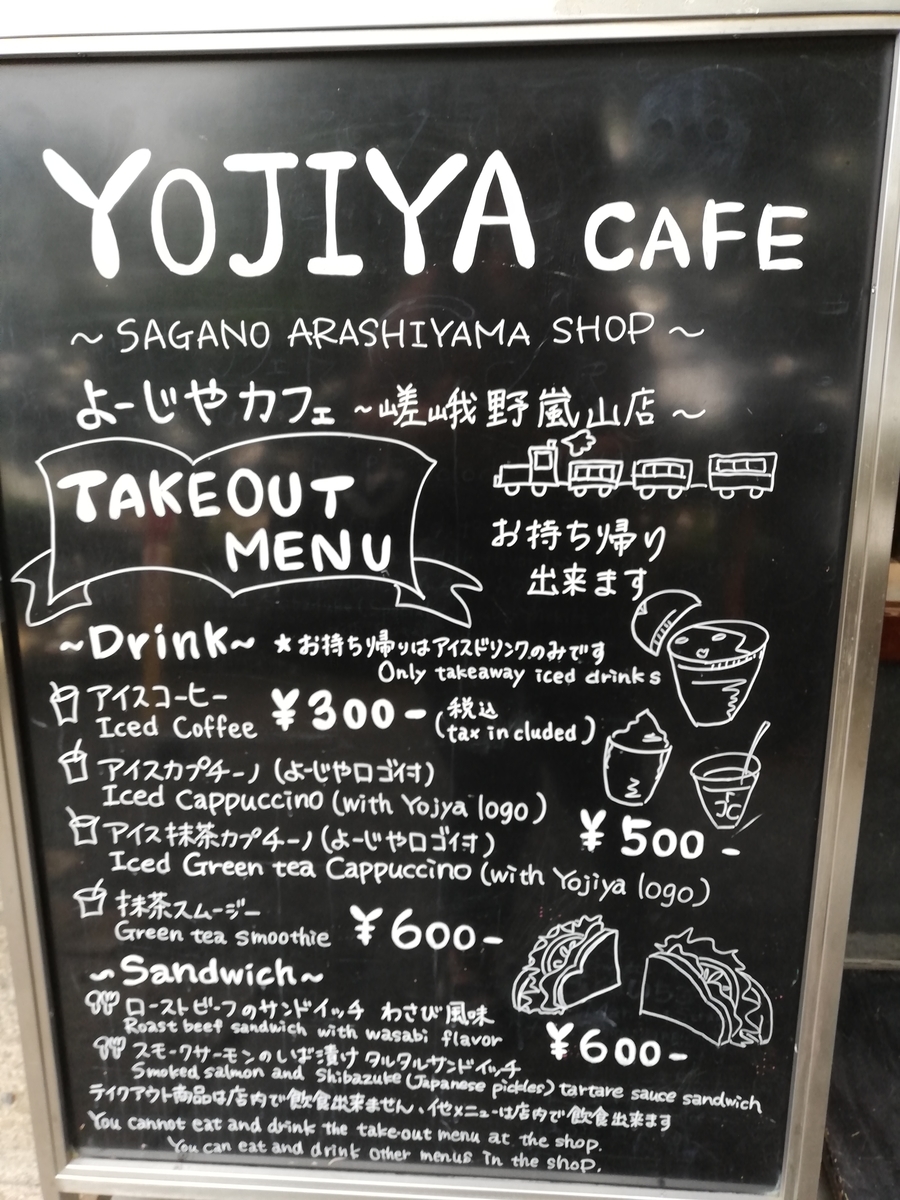 YOJIYA CAFE
~ SAGANO ARASHIYAMA SHOP ~
よーじやカフェ ~嵯峨野嵐山店~
TAKEOUT
MENU
お持ち帰り
出来ます
~Drink~ ★お持ち帰りはアイスドリンクのみです
Only takeaway iced drinks
アイスコーヒー
Iced Coffee ¥300- 税込
(tax in cluded)
アイスカプチーノ(よーじやロゴ付)
Iced Cappuccino (with Yojya logo)
アイス抹茶カプチーノ(よーじやロゴ付) ¥500-
Iced Green tea Cappuccino (with Yojiya logo)
抹茶スムージー
Green tea smoothie ¥600-
~Sandwich~
ローストビーフのサンドイッチ わさび風味
Roast beef sandwich with wasabi flavor
¥600-
スモークサーモンのしば漬けタルタルサンドイッチ
Smoked salmon and Shibazuke (Japanese pickles) tartare sauce sandwich
テイクアウト商品は店内で飲食出来ません、他メニューは店内で飲食出来ます
You cannot eat and drink the take-out menu at the shop.
You can eat and drink other menus in the shop.